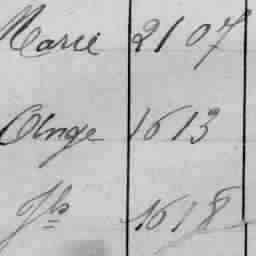 Marie 2107
Ange 1613
Jh 1618